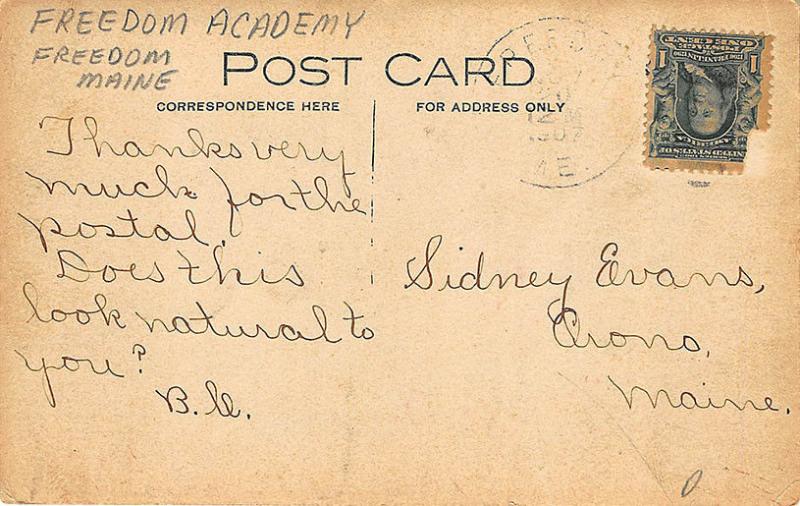 FREEDOM ACADEMY
FREEDOM
MAINE
POST CARD
CORRESPONDENCE HERE
FOR ADDRESS ONLY
Thanks very
much for the
postal.
Does this
look natural to
you?
Sidney Evans,
Orono,
Maine.
12 M
1907
ME.
ONE CENT
POSTAGE
1 1